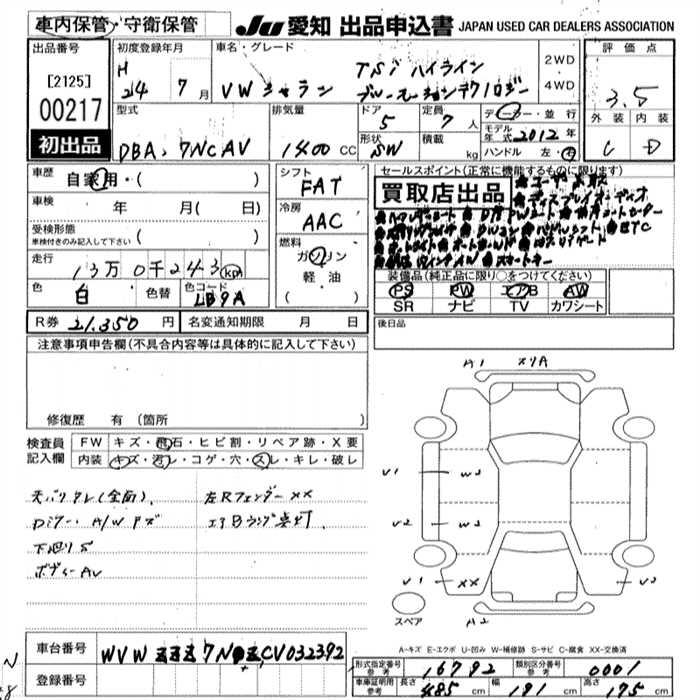 車内保管・守衛保管
JU 愛知 出品申込書 JAPAN USED CAR DEALERS ASSOCIATION
出品番号
[2125]
00217
初出品
初度登録年月
H 24 7月
車名・グレード
VW シャラン
TSi ハイライン
2WD
4WD
評価点
3.5
外装 内装
C D
型式
DBA. 7NCAV
排気量
1400 CC
ドア
5
形状
SW
定員
7人
積載
kg
ディーラー・並行
モデル年式 2012年
ハンドル 左・右
車歴
自家用・( )
車検
年 月( 日)
受検形態
車検付きのみ記入して下さい ( )
走行
13万0千243 km
色
白
色替
色コード
LB9A
シフト
FAT
冷房
AAC
燃料
ガソリン
軽油
( )
セールスポイント(正常に機能するものに限ります)
買取店出品
装備品(純正品に限り○をつけてください)
PS PW エアB AW
SR ナビ TV カワシート
R券 21.350 円 名変通知期限 月 日
後日品
注意事項申告欄(不具合内容等は具体的に記入して下さい)
修復歴 有(箇所 )
検査員記入欄
FW キズ・飛石・ヒビ割・リペア跡・X要
内装 キズ・汚レ・コゲ・穴・スレ・キレ・破レ
天バリタレ(全面).
左Rフェンダー XX
A/W キズ
エアBランプ点灯
下廻りS
ボディーAV
A1
V1 W3
V2 W3
V1 XX
V3
A2
スペア
A-キズ E-エクボ U-凹み W-補修跡 S-サビ C-腐食 XX-交換済
車台番号 WVWZZZ7NZCV032392
登録番号
形式指定番号 参考 16792
類別区分番号 参考 0001
車庫証明用 参考 長さ 485 cm 幅 191 cm 高さ 175 cm